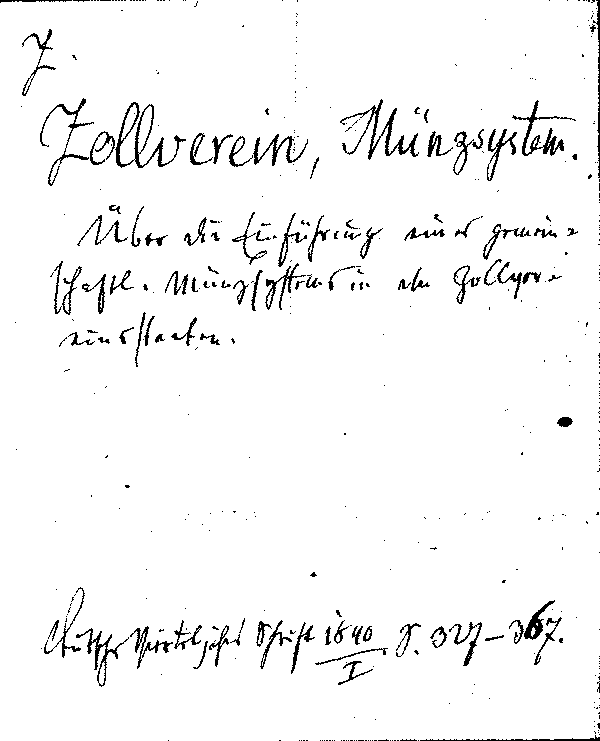 Z.
Zollverein, Münzsystem.
Über die Einführung eines gemein-
schaftl. Münzsystems in den Zollver-
einsstaaten.
Deutsche Vierteljahrs Schrift 1840 S. 327-367.
I